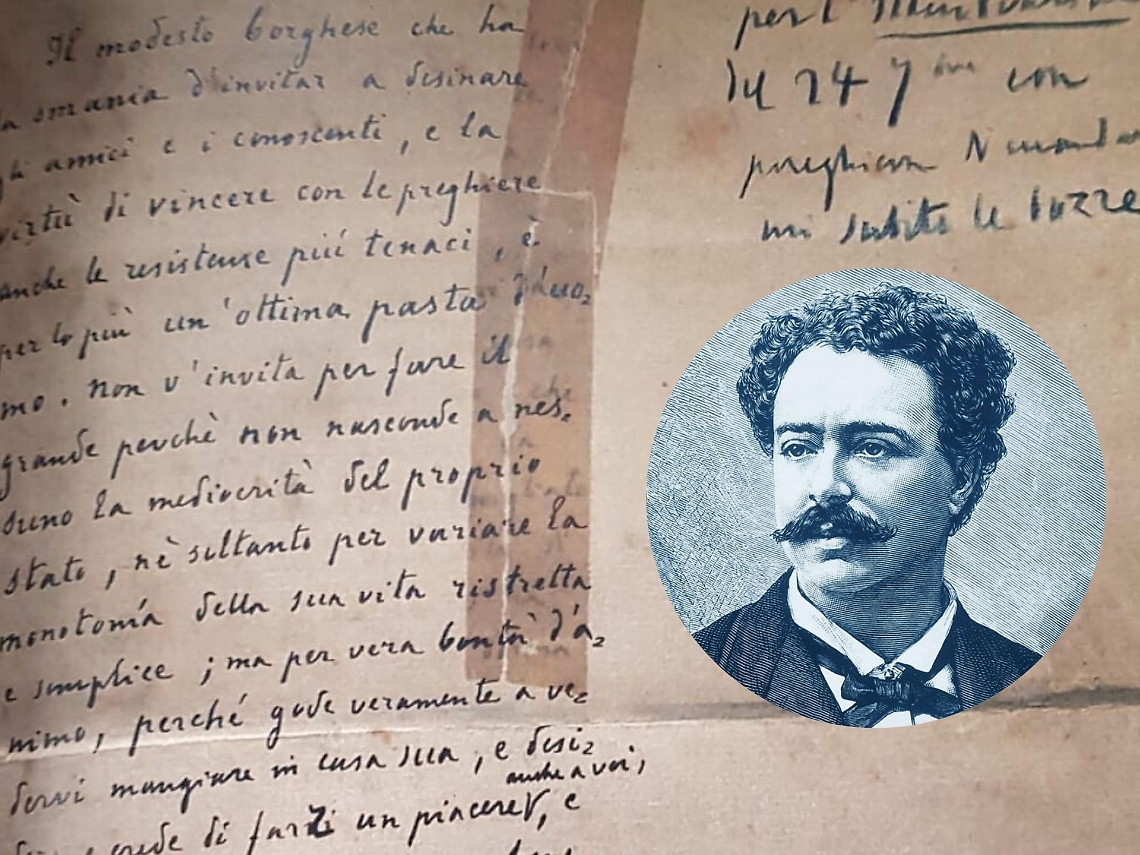 Il modesto borghese che ha
la smania d'invitar a desinare
gli amici e i conoscenti, e la
virtù di vincere con le preghiere
anche le resistenze piú tenaci, è
per lo più un'ottima pasta d'uo=
mo. Non v'invita per fare il
grande perchè non nasconde a nes=
suno la mediocrità del proprio
stato, nè soltanto per variare la
monotonía della sua vita ristretta
e semplice; ma per vera bontà d'a=
nimo, perché gode veramente a ve=
dervi mangiare in casa sua, e desi=
anche a voi;
crede di farvi un piacere, e
per l'
del 24 con
preghiera
mi subito le bozze